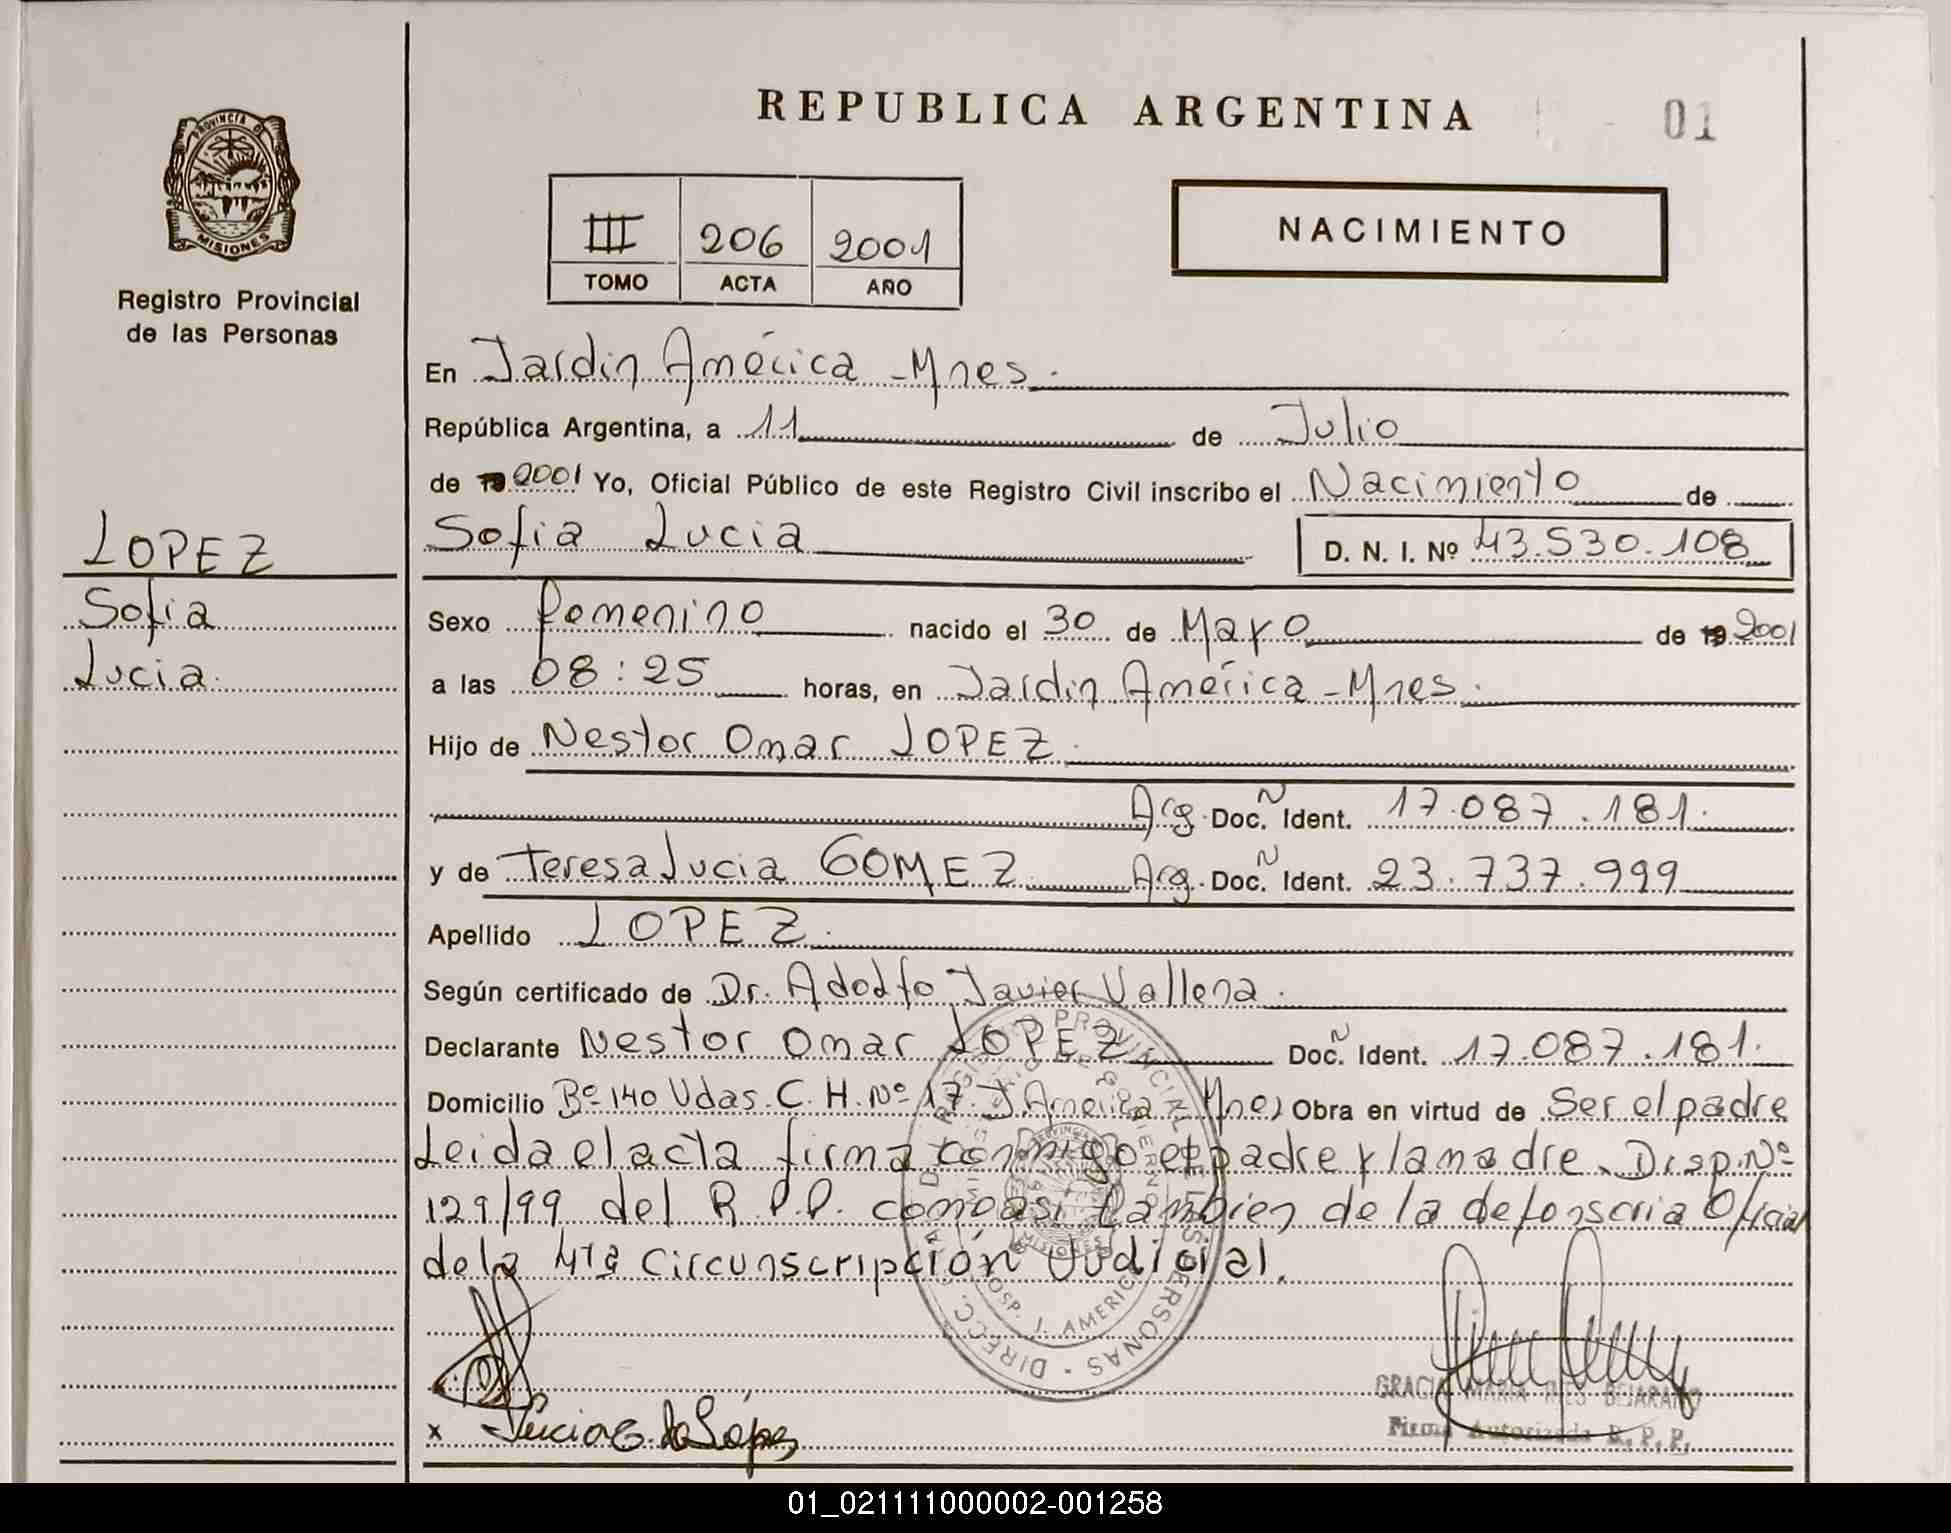 REPUBLICA ARGENTINA
01
PROVINCIA DE
MISIONES
Registro Provincial
de las Personas
III 206 2001
TOMO ACTA AÑO
NACIMIENTO
En Jardin América - Mnes.
República Argentina, a 11 de Julio
de 19 2001 Yo, Oficial Público de este Registro Civil inscribo el Nacimiento de
Sofia Lucia D. N. I. Nº 43.530.108
LOPEZ
Sofia
Lucia.
Sexo femenino nacido el 30 de Mayo de 19 2001
a las 08:25 horas, en Jardin América - Mnes.
Hijo de Nestor Omar LOPEZ.
Arg. Doc. Ñ Ident. 17.087.181.
y de Teresa Lucia GOMEZ Arg. Doc. Ñ Ident. 23.737.999
Apellido LOPEZ.
Según certificado de Dr. Adolfo Javier Vallena.
Declarante Nestor Omar LOPEZ Doc. Ñ Ident. 17.087.181.
Domicilio Bº 140 Vdas. C. H. Nº 17. J. América Mnes Obra en virtud de Ser el padre
Leida el acta firma conmigo el padre y la madre. Disp. Nº
129/99 del R.P.P. como asi tambien de la defensoria Oficial
de la 4ta Circunscripción Judicial.
HOSP. J. AMERICA
x Lucia G. de López
GRACIA MARIA BEJARANO
Firma Autorizada R.P.P.
01_021111000002-001258